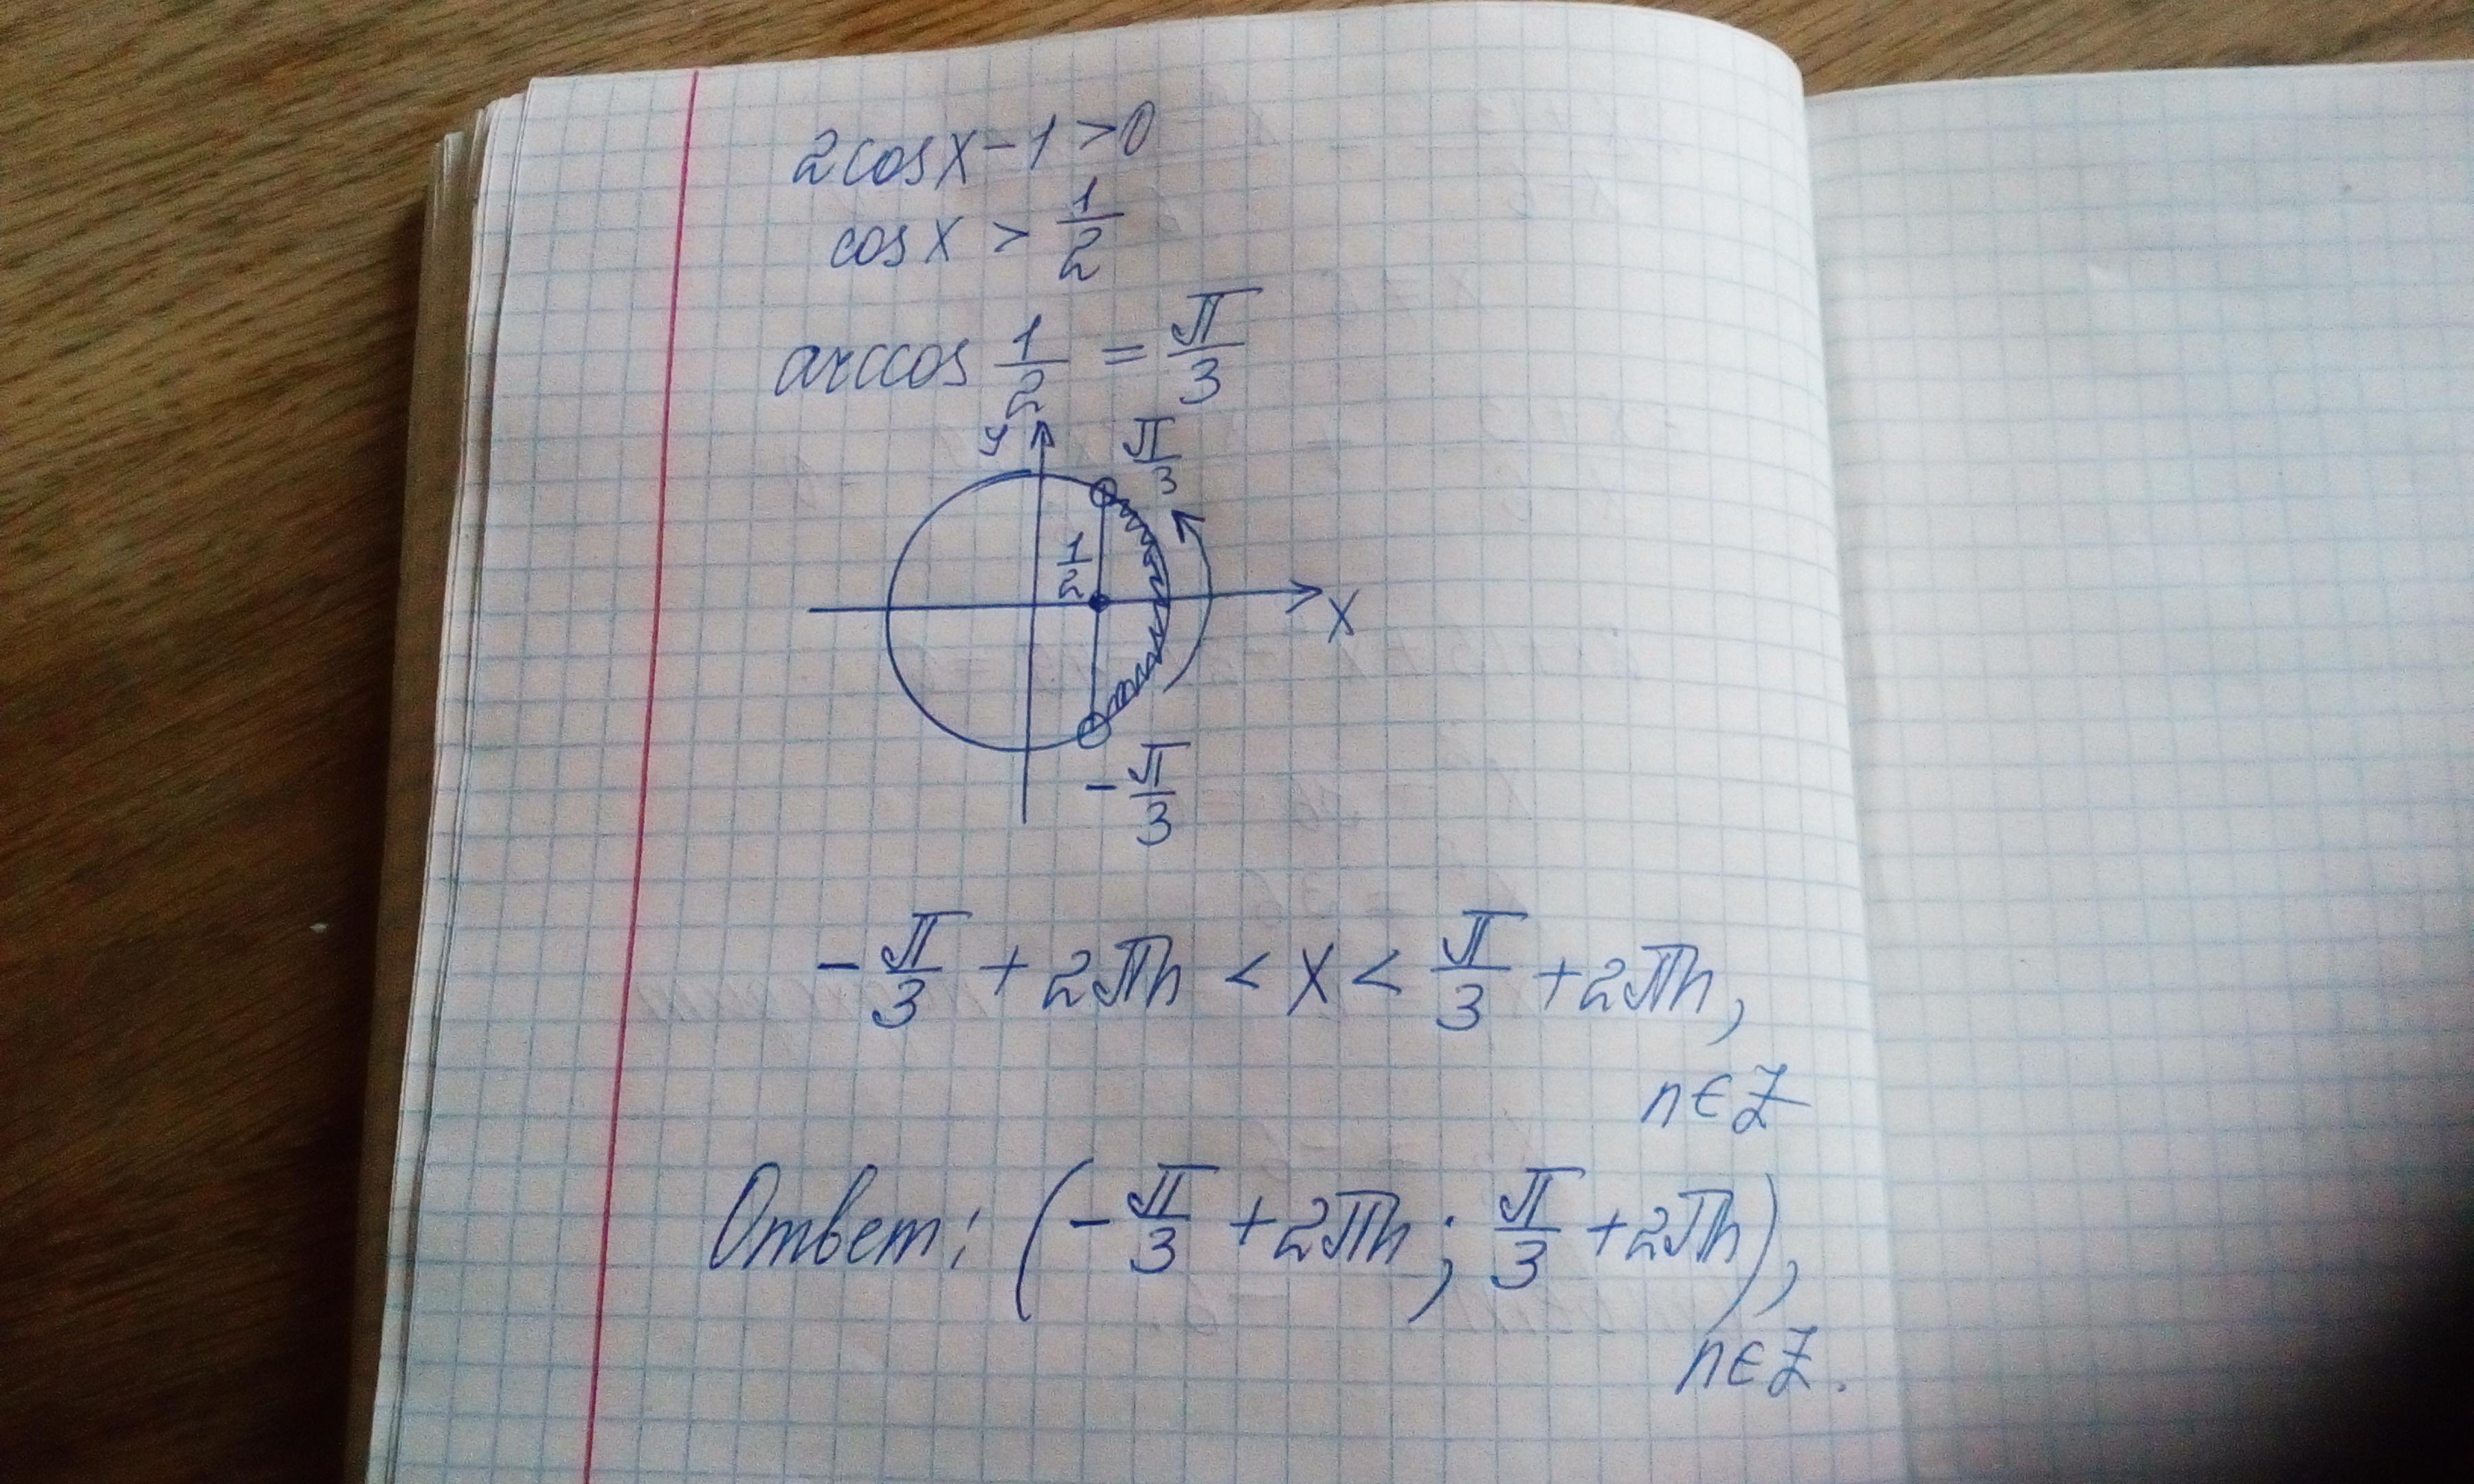 2cosx-1>0
cosx > 1/2
arccos 1/2 = π/3
y
π/3
1/2
x
-π/3
-π/3 + 2πn < x < π/3 + 2πn,
n∈Z
Ответ: (-π/3 + 2πn; π/3 + 2πn),
n∈Z.